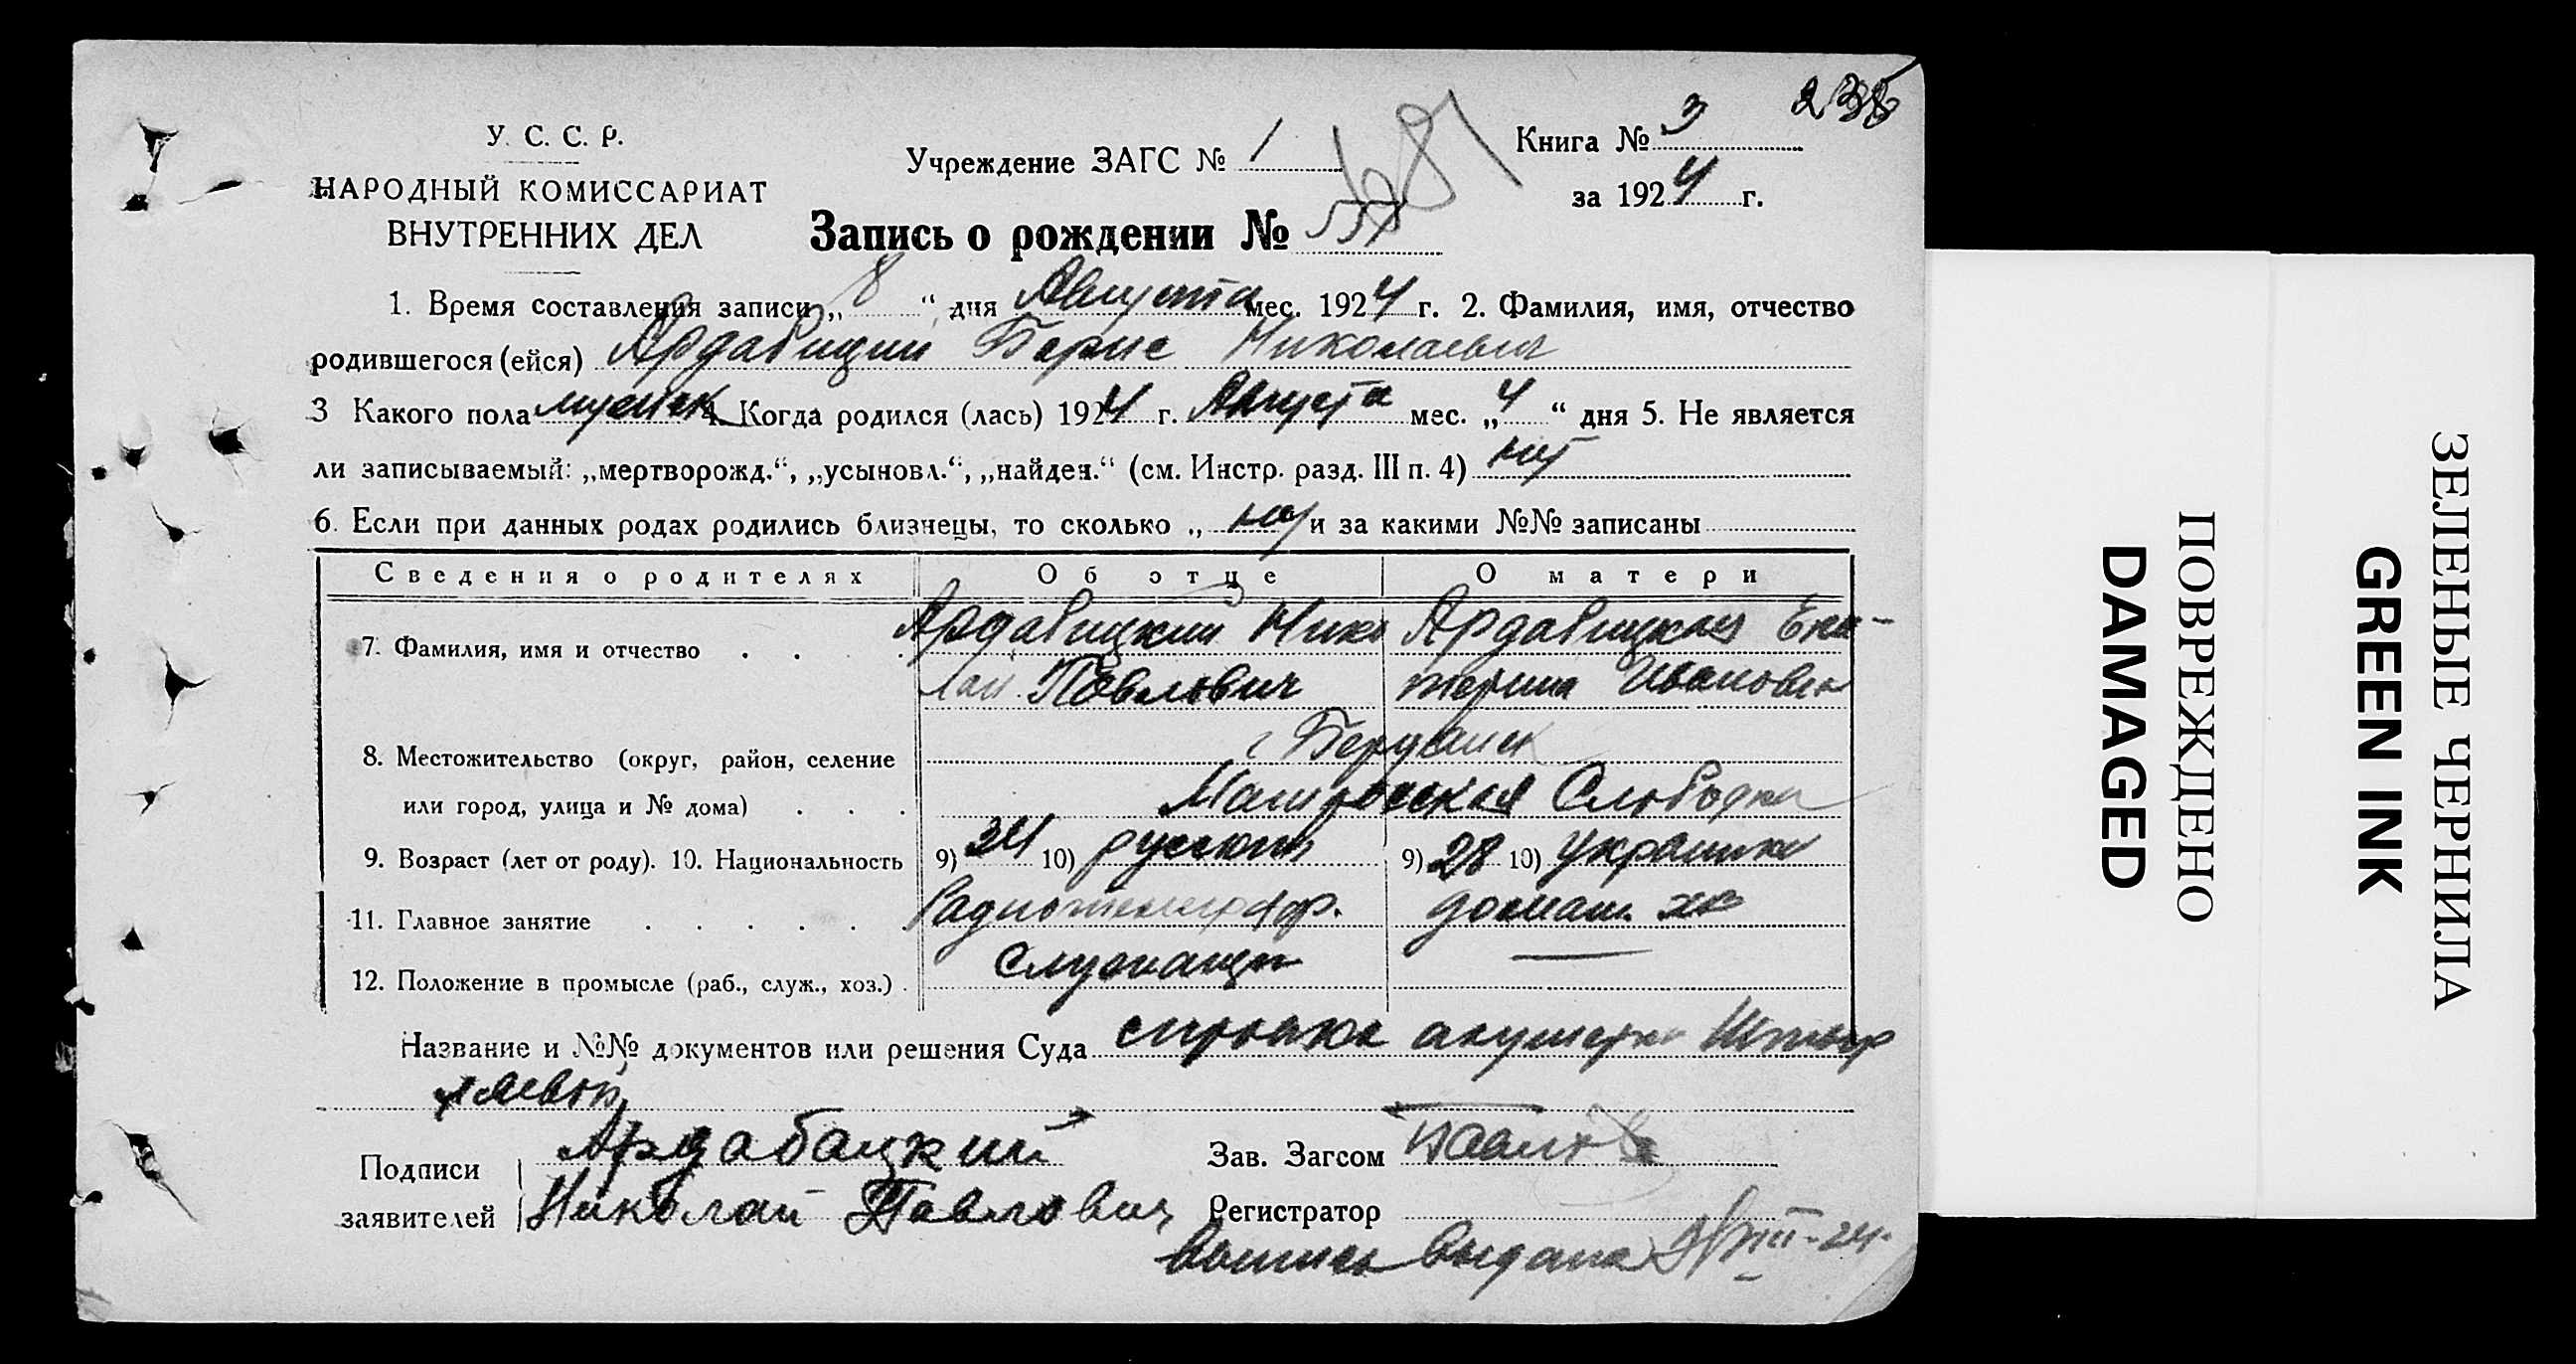 238
У. С. С. Р.
НАРОДНЫЙ КОМИССАРИАТ
ВНУТРЕННИХ ДЕЛ
Учреждение ЗАГС № 1
Книга № 3
за 1924 г.
Запись о рождении №
1. Время составления записи „ 8 “ дня Августа мес. 1924 г. 2. Фамилия, имя, отчество
родившегося (ейся) Ардабицкий Борис Николаевич
3 Какого пола мужск 4. Когда родился (лась) 1924 г. Августа мес. „ 4 “ дня 5. Не является
ли записываемый: „мертворожд.“, „усыновл.“, „найден.“ (см. Инстр. разд. III п. 4) нет
6. Если при данных родах родились близнецы, то сколько „ нет и за какими №№ записаны
Сведения о родителях Об отце О матери
7. Фамилия, имя и отчество . . . . Ардабицкий Нико Ардабицкая Ека-
лай Павлович терина Ивановна
8. Местожительство (округ, район, селение г Бердянск
или город, улица и № дома) . . . Матросская Слободка
9. Возраст (лет от роду). 10. Национальность 9) 24 10) русский 9) 28 10) украинка
11. Главное занятие . . . . . . Радиотелеграф. домаш. хоз
12. Положение в промысле (раб., служ., хоз.) . Служащий —
Название и №№ документов или решения Суда справка акушерки
Подписи Ардабацкий Зав. Загсом
заявителей Николай Павлович Регистратор
Выпись выдана VIII-24.
ПОВРЕЖДЕНО
DAMAGED
ЗЕЛЕНЫЕ ЧЕРНИЛА
GREEN INK